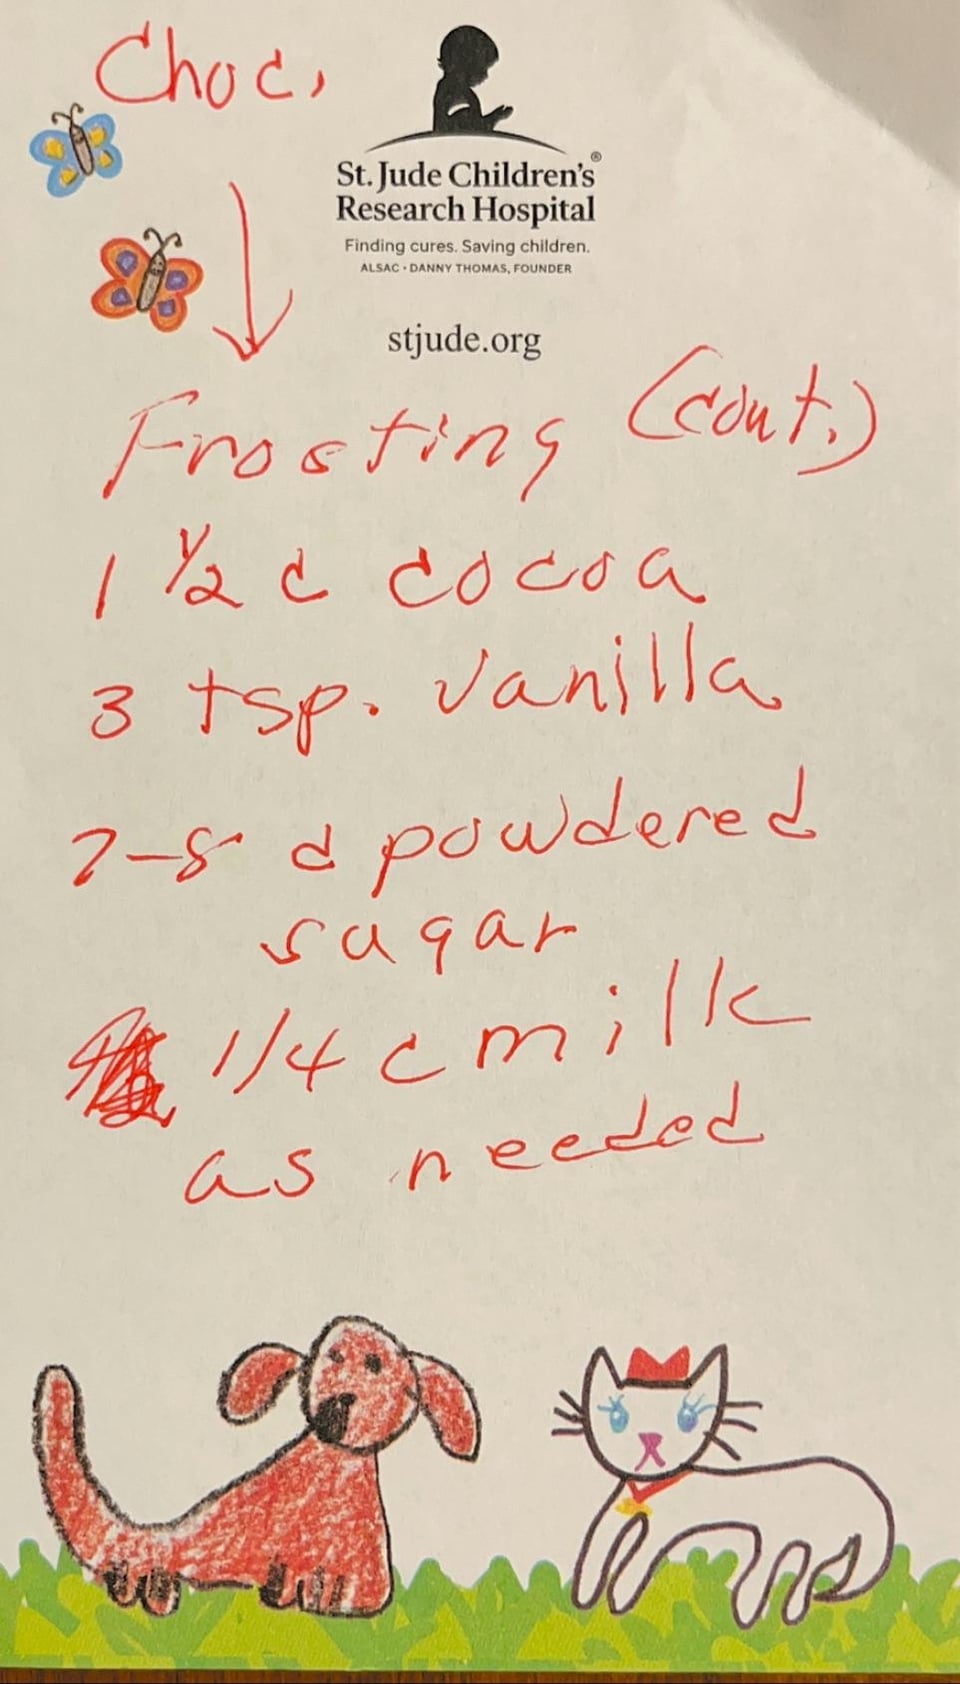 Choc.
St. Jude Children's®
Research Hospital
Finding cures. Saving children.
ALSAC · DANNY THOMAS, FOUNDER
stjude.org
Frosting (cont.)
1 1/2 c cocoa
3 tsp. vanilla
7-8 c powdered
sugar
1/4 c milk
as needed